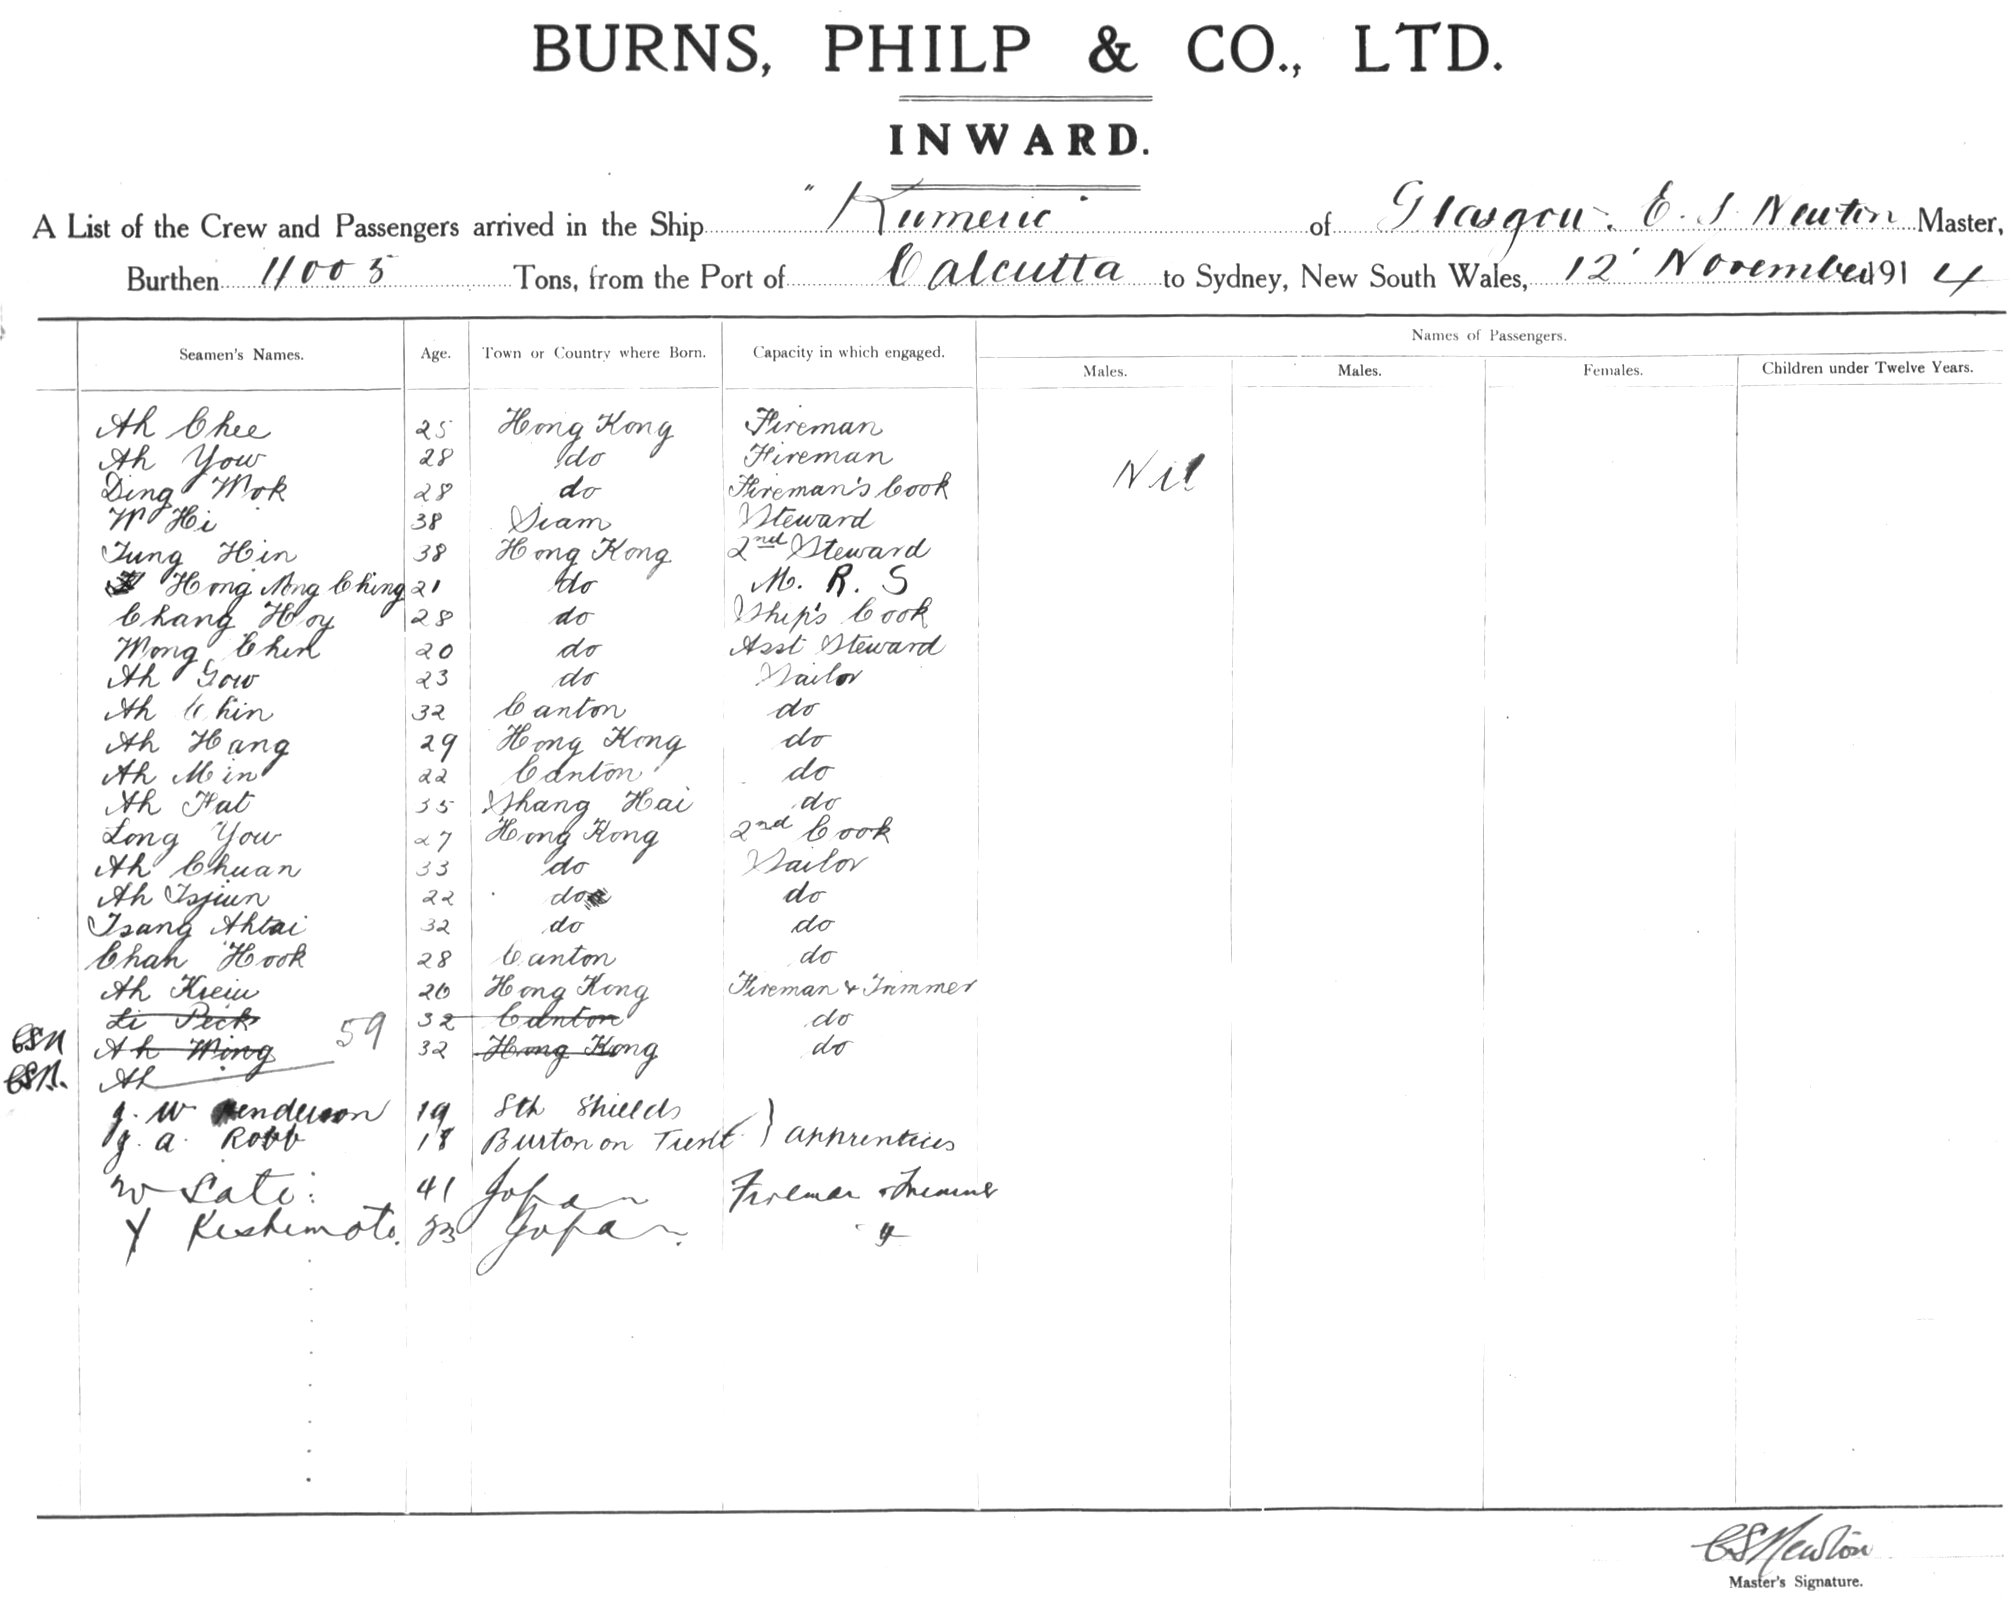 BURNS, PHILP & CO., LTD.
INWARD.
A List of the Crew and Passengers arrived in the Ship "Kumeric" of Glasgow. E. S. Newton Master,
Burthen 11005 Tons, from the Port of Calcutta to Sydney, New South Wales, 12' November 1914
Names of Passengers.
Seamen's Names. Age. Town or Country where Born. Capacity in which engaged. Males. Males. Females. Children under Twelve Years.
Ah Chee 25 Hong Kong Fireman
Ah You 28 do Fireman Nil
Ding Mok 28 do Fireman's Cook
W Hi 38 Siam Steward
Tung Hin 38 Hong Kong 2nd Steward
Hong Mng Ching 21 do M. R. S
Chang Hoy 28 do Ship's Cook
Wong Chin 20 do Asst Steward
Ah Gow 23 do Sailor
Ah Chin 32 Canton do
Ah Hang 29 Hong Kong do
Ah Min 22 Canton do
Ah Fat 35 Shang Hai do
Long You 27 Hong Kong 2nd Cook
Ah Chuan 33 do Sailor
Ah Tsjiun 22 do do
Tsang Ahtai 32 do do
Chan Hook 28 Canton do
Ah Kreiu 26 Hong Kong Fireman & Trimmer
Li Peck 32 Canton do
ESN Ah Wing 59 32 Hong Kong do
ESN. Ah
J. W Henderson 19 Sth Shields
J. A. Robb 18 Burton on Trent } apprentices
W Sato: 41 Japan Fireman & Trimmer
Y Kishimoto. 33 Japan.
ESNewton
Master's Signature.